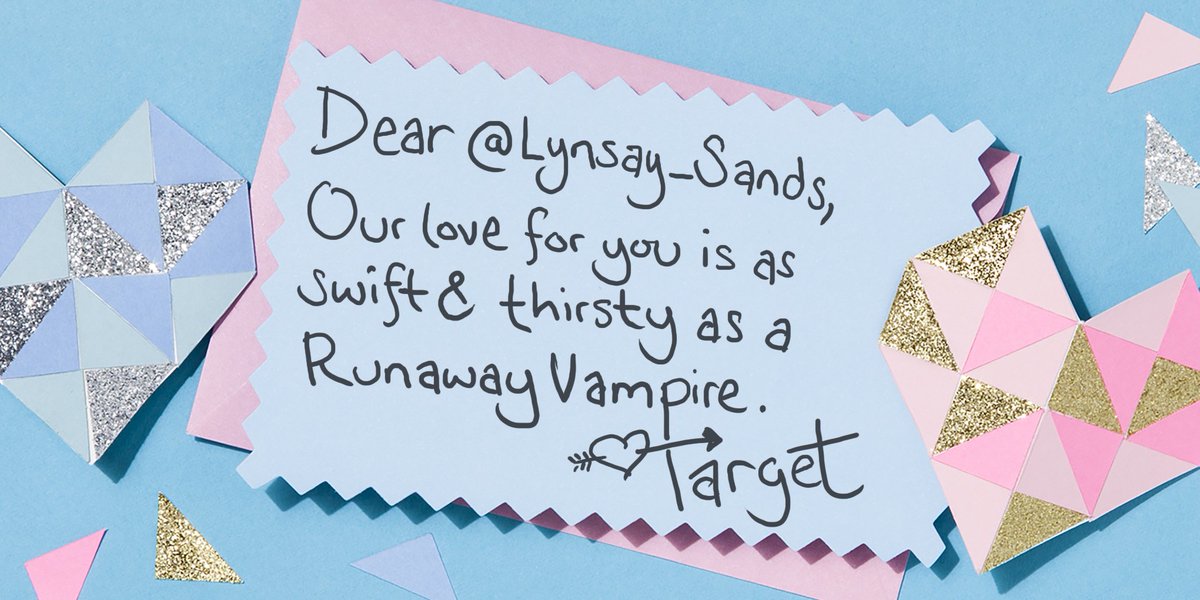 Dear @Lynsay_Sands,
Our love for you is as
swift & thirsty as a
Runaway Vampire.
Target